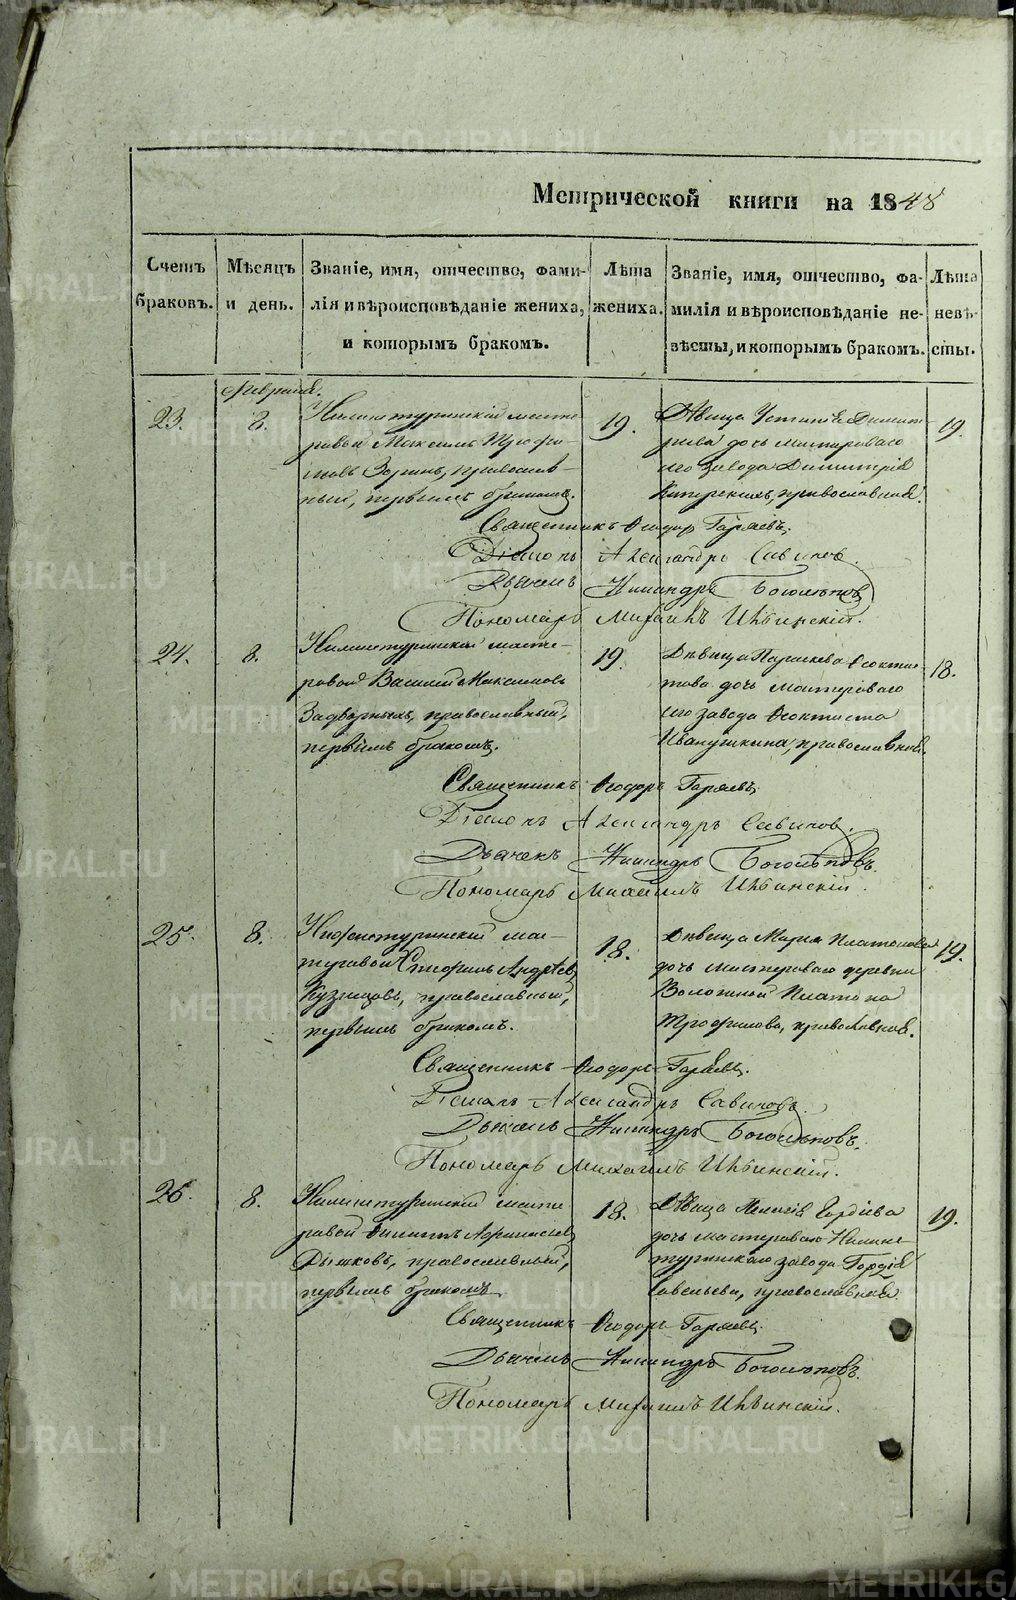 Метрической книги на 1848
Счетъ браковъ.
Мѣсяцъ и день.
Званіе, имя, отчество, фамилія и вѣроисповѣданіе жениха, и которымъ бракомъ.
Лѣта жениха.
Званіе, имя, отчество, фамилія и вѣроисповѣданіе невѣсты, и которымъ бракомъ.
Лѣта невѣсты.
Февраля.
23.
8.
Нижнетуринскій масте-
ровой Максимъ
Зоринъ, православ-
ный, первымъ бракомъ.
19.
Дѣвица Димит-
ріева дочь мастероваго
его завода Димитрія
православная.
19.
Священникъ Ѳеодоръ Гаряевъ.
Діаконъ Александръ Савиновъ.
Дьячекъ Никандръ Боголѣповъ
Пономарь Михаилъ Ильинскій.
24.
8.
Нижнетуринскій масте-
ровой Василій Максимовъ
Задворныхъ, православный,
первымъ бракомъ.
19.
Дѣвица Параскева Ѳеоктис-
това дочь мастероваго
его завода Ѳеоктиста
Иванушкина, православная.
18.
Священникъ Ѳеодоръ Гаряевъ
Діаконъ Александръ Савиновъ.
Дьячекъ Никандръ Боголѣповъ.
Пономарь Михаилъ Ильинскій.
25.
8.
Нижнетуринскій мас-
теровой Андреевъ
Кузнецовъ, православный,
первымъ бракомъ.
18.
Дѣвица Марія Платонова
дочь мастероваго деревни
Платона
Трофимова, православная.
19.
Священникъ Ѳеодоръ Гаряевъ.
Діаконъ Александръ Савиновъ.
Дьячекъ Никандръ Боголѣповъ.
Пономарь Михаилъ Ильинскій.
26.
8.
Нижнетуринскій масте-
ровой Филиппъ
православный,
первымъ бракомъ
18.
Дѣвица Гордіева
дочь мастероваго Нижне-
туринскаго завода Гордія
Савельева, православная.
19.
Священникъ Ѳеодоръ Гаряевъ.
Дьячекъ Никандръ Боголѣповъ.
Пономарь Михаилъ Ильинскій.
METRIKI.GASO-URAL.RU